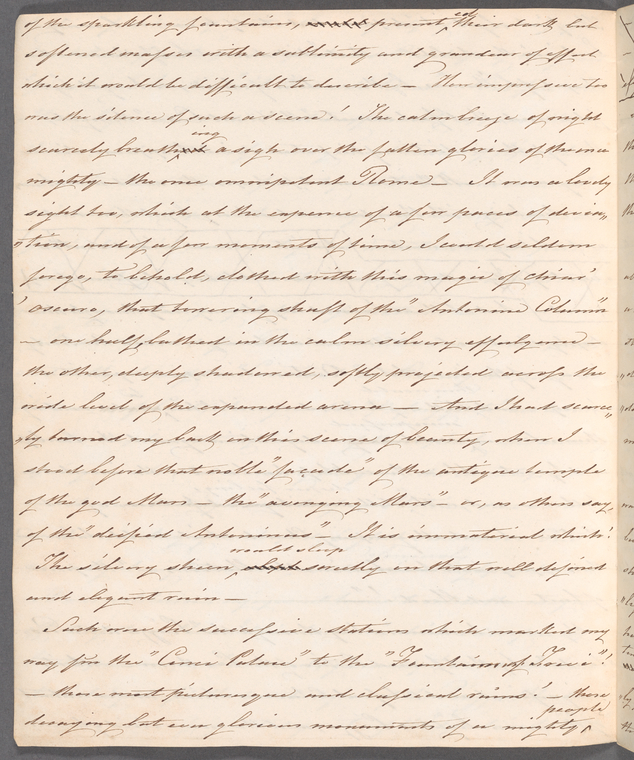 of the sparkling fountains, presented their dark but
softened masses with a sublimity and grandeur of effect
which it would be difficult to describe — How impressive too
was the silence of such a scene! The calm breeze of night
scarcely breathing a sigh over the fallen glories of the once
mighty — the once omnipotent Rome — It was a lovely
sight too, which at the expence of a few paces of devia„
„tion, and of a few moments of time, I could seldom
forego, to behold, clothed with this magic of chiar'
'oscuro, that towering shaft of the "Antonine Column"
— one half, bathed in the calm silvery effulgence —
the other, deeply shadowed, softly projected across the
wide level of the expanded arena — And I had scarce„
„ly turned my back on this scene of beauty, when I
stood before that noble "façade" of the antique temple
of the god Mars — the "avenging Mars" — or, as others say,
of the "deified Antoninus" — It is immaterial which!
The silvery sheen would sleep sweetly on that well defined
and elegant ruin —
Such were the successive stations which marked my
way fm the "Cenci Palace" to the "Fountain of Trevi"!
— those most picturesque and classical ruins! — those
decaying but ever glorious monuments of a mighty people